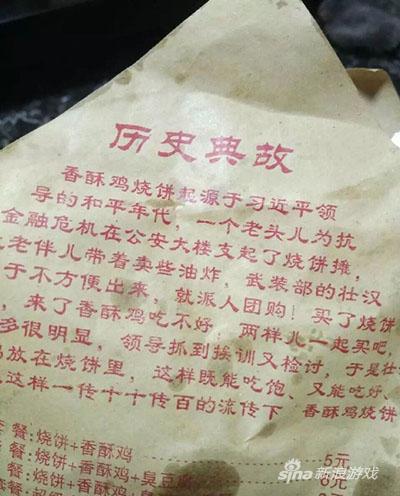 历史典故
香酥鸡烧饼起源于习近平领
导的和平年代，一个老头儿为抗
金融危机在公安大楼支起了烧饼摊，
老伴儿带着卖些油炸，武装部的壮汉
于不方便出来，就派人团购！买了烧饼
，来了香酥鸡吃不好，两样儿一起买吧，
多很明显，领导抓到挨训又检讨，于是壮
放在烧饼里，这样既能吃饱、又能吃好、
这样一传十十传百的流传下 香酥鸡烧饼
餐：烧饼+香酥鸡 5元
餐：烧饼+香酥鸡+臭豆腐 6元
餐：烧饼+香酥鸡+
sina新浪游戏